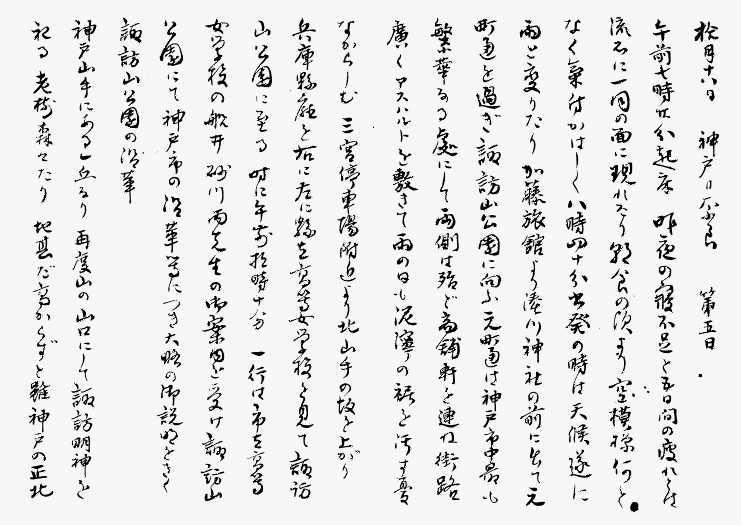 拾月十六日　神戸ヨリ奈良　第五日.
午前七時廿分起床　昨夜の寢不足と五日間の疲れとは
流石に一同の面に現れたり朝食の頃より空模様何と
なく氣付かはしく八時四十分出発の時は天候遂に
雨と変りたり加藤旅館より湊川神社の前に出て元
町通を過ぎ諏訪山公園に向ふ元町通は神戸市中最も
繁華なる處にして両側は殆ど商舗軒を連ね街路
廣くアスハルトを敷きて雨の日も泥濘の裾を汚す憂
なからしむ 三宮停車場附近より北山手の坂を上がり
兵庫縣廳を右に左に縣立高等女学校を見て諏訪
山公園に至る　時に午前拾時十分　一行は市立高等
女学校の舩井　砂川両先生の御案内を受け諏訪山
公園にて神戸市の沿革等につき大略の御説明をきく
諏訪山公園の沿革
神戸山手にある一丘なり　再度山の山口にして諏訪明神を
祀る　老樹森々たり　地甚だ高からずと雖神戸の正北